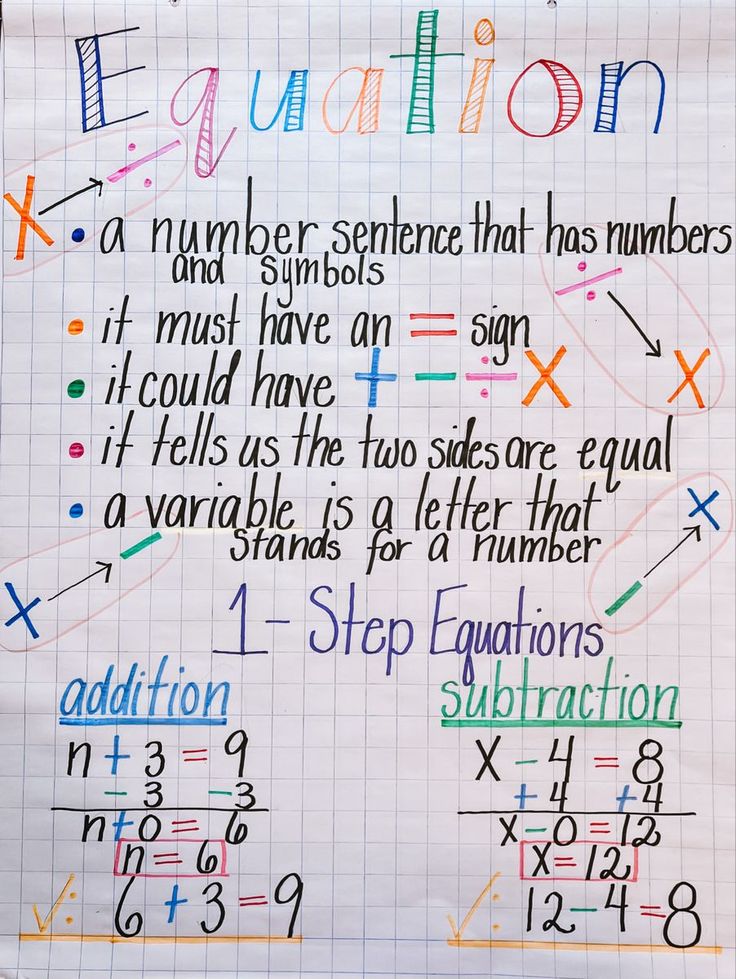 Equation
X → ÷
• a number sentence that has numbers
and symbols
÷ → X
• it must have an = sign
• it could have + - ÷ X
• it tells us the two sides are equal
• a variable is a letter that
stands for a number
X → -
- → X
1- Step Equations
addition
n + 3 = 9
- 3 - 3
n + 0 = 6
n = 6
✓: 6 + 3 = 9
subtraction
X - 4 = 8
+ 4 + 4
X - 0 = 12
X = 12
✓: 12 - 4 = 8